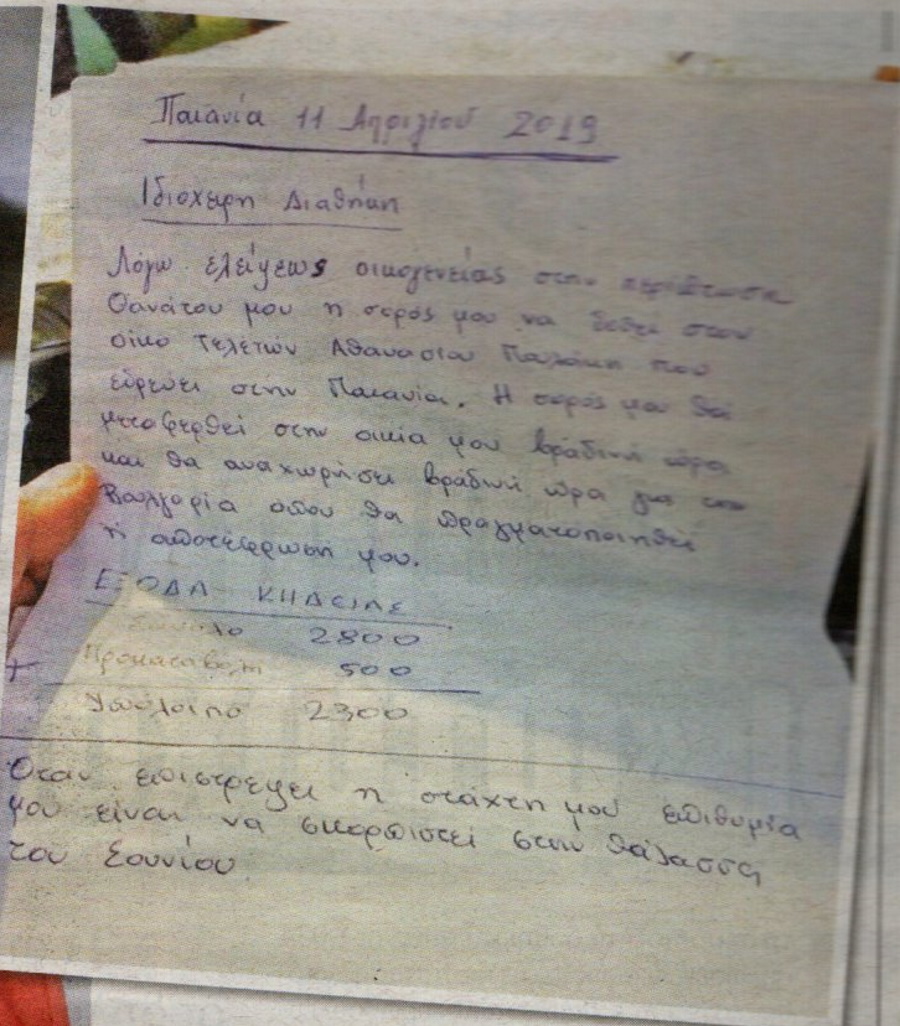 Παιανία 11 Απριλίου 2019
Ιδιοχειρη Διαθήκη
Λόγω ελείψεως οικογενείας στην περίπτωση
Θανάτου μου η σορός μου να δεθεί στον
οίκο Τελετών Αθανασίου Παλάκη που
εύρεται στην Παιανία. Η σορός μου θα
μεταφερθεί στην οικία μου βραδινή ώρα
και θα αναχωρήσει βραδινή ώρα για την
Βουλγαρία οπου θα πραγματοποιηθεί
ή αποτέφρωση μου.
ΕΞΟΔΑ ΚΗΔΕΙΑΣ
2800
+ Προκαταβολη 500
Υπόλοιπο 2300
Όταν επιστρέψει η στάχτη μου επιθυμία
μου είναι να σκορπιστεί στην θάλασσα
του Σουνίου